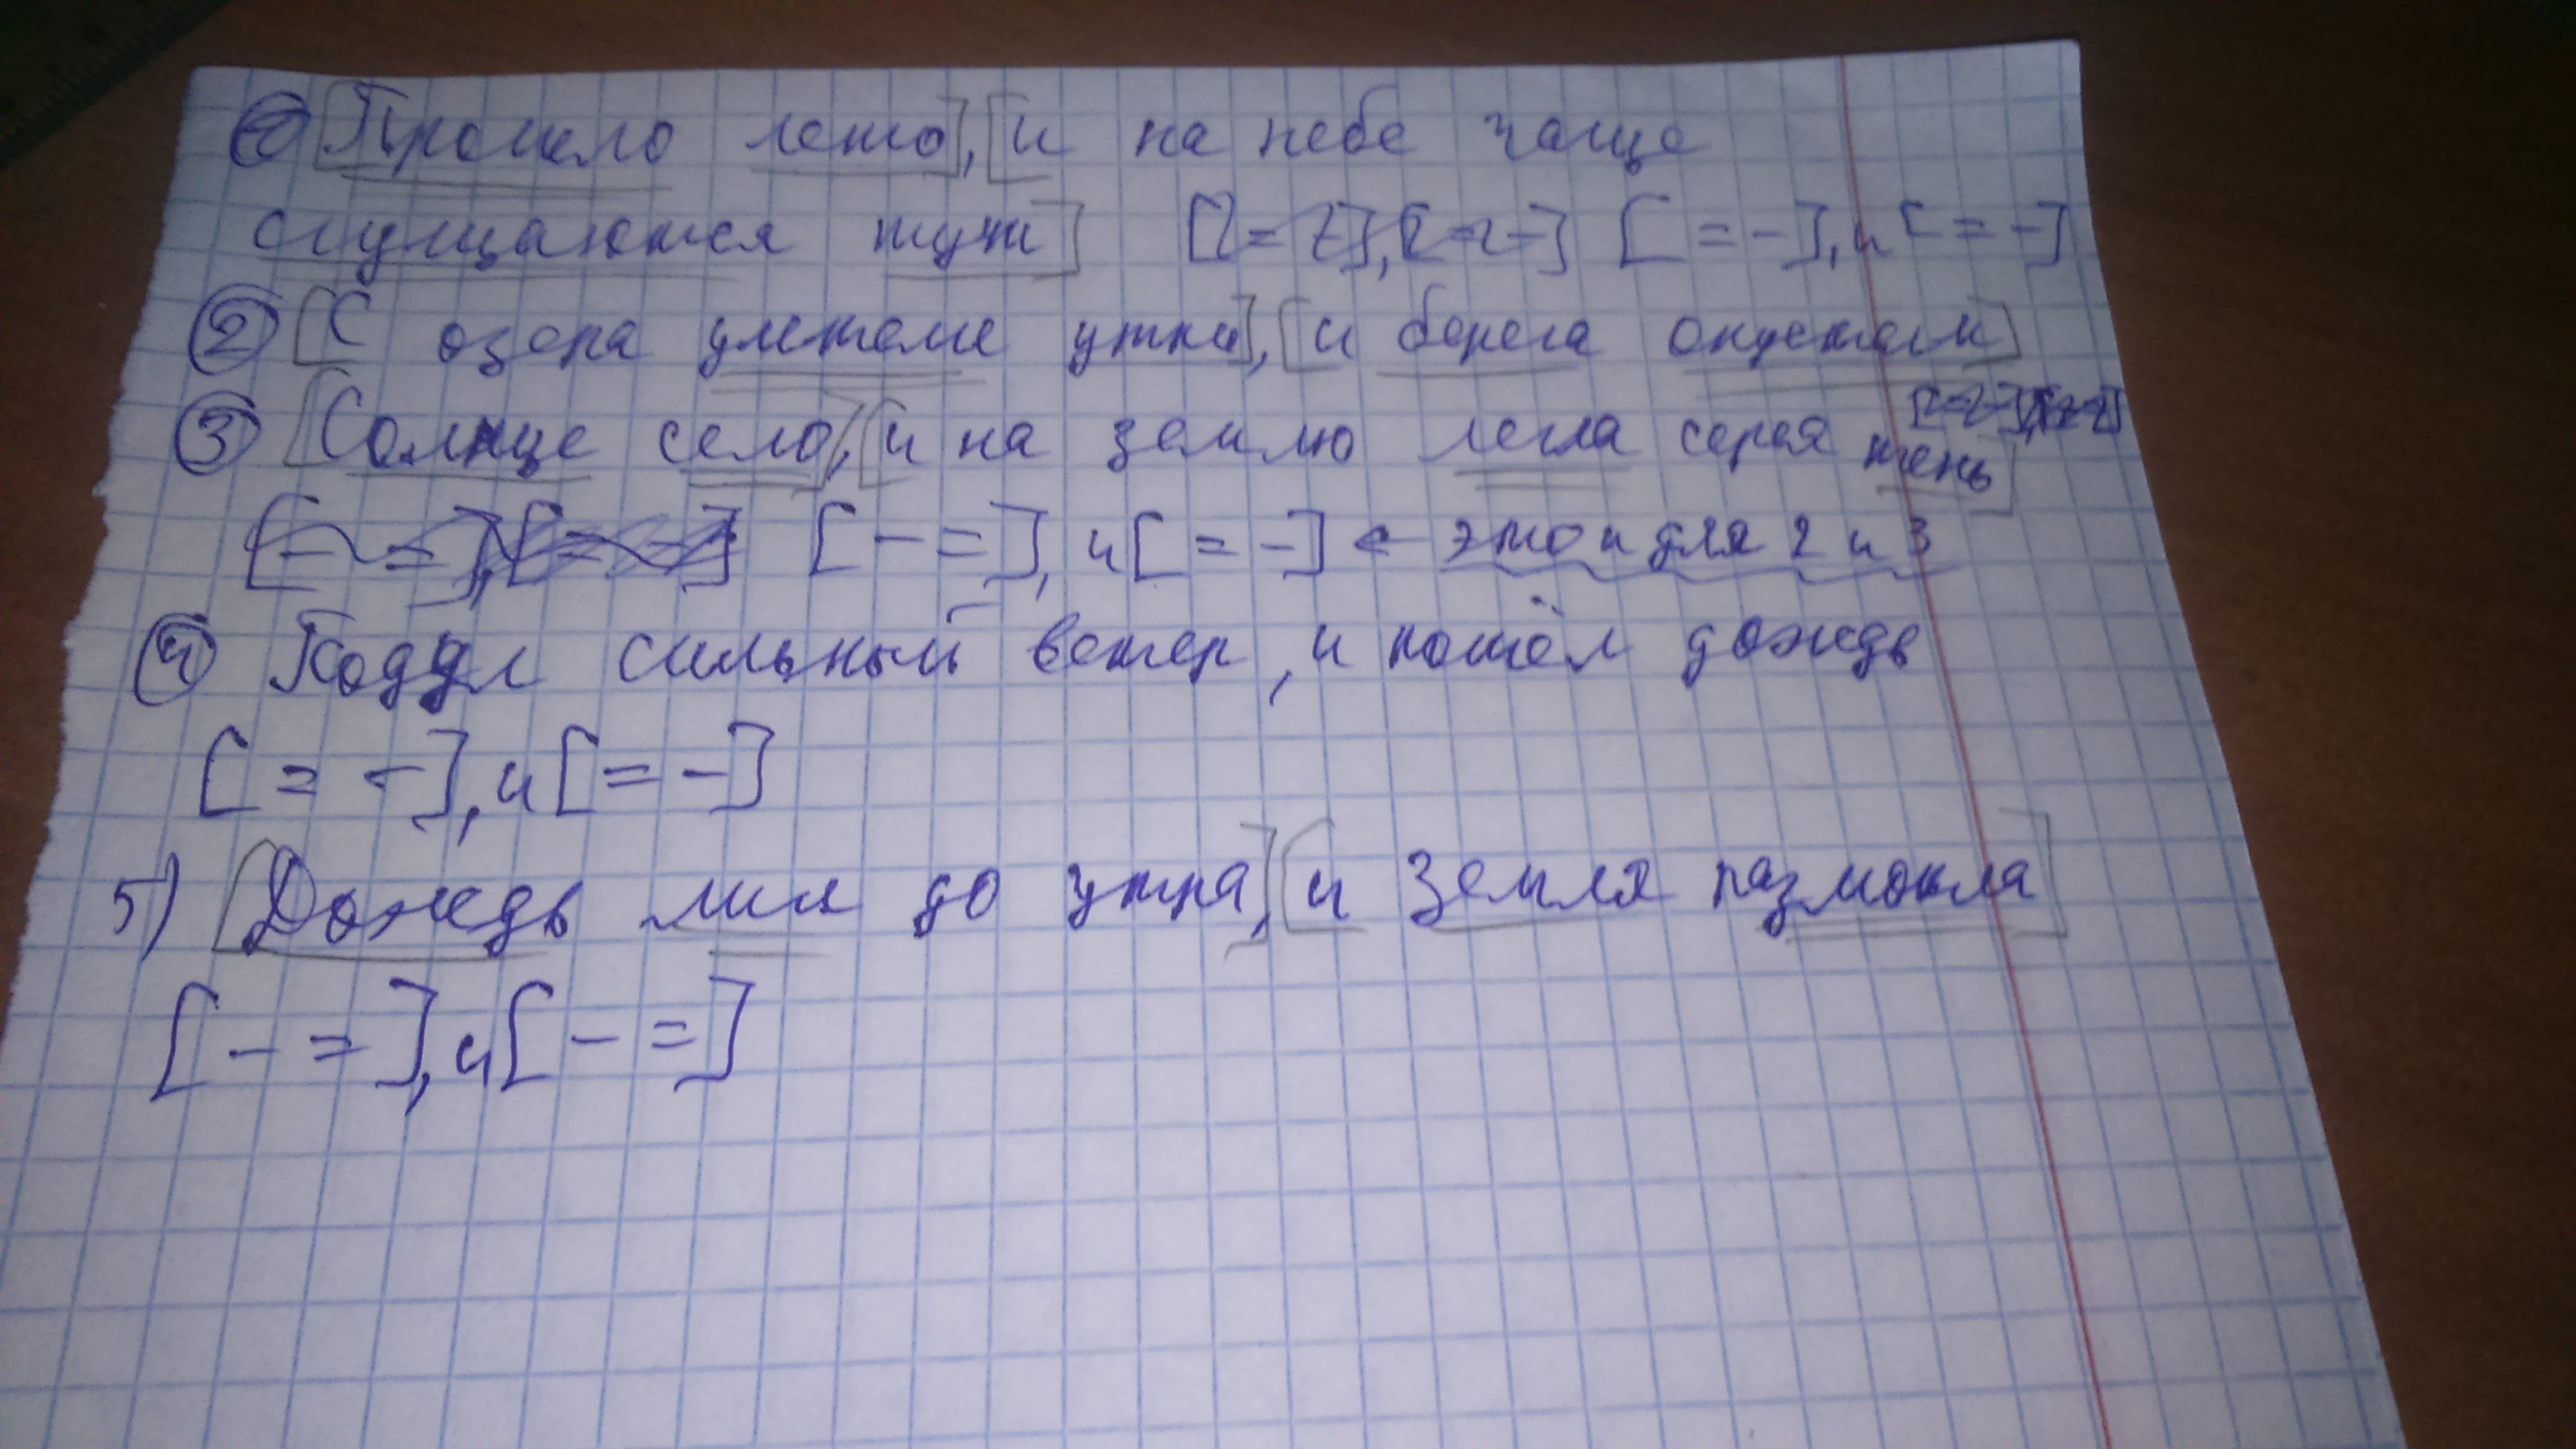 ① [Прошло лето], [и на небе чаще
сгущаются тучи] [= -], и [= -]
② [С озера улетели утки], [и берега опустели]
③ [Солнце село], [и на землю легла серая тень]
[- =], и [= -] ← это и для 2 и 3
④ Подул сильный ветер, и пошёл дождь
[= -], и [= -]
5) [Дождь лил до утра], [и земля размокла]
[- =], и [- =]